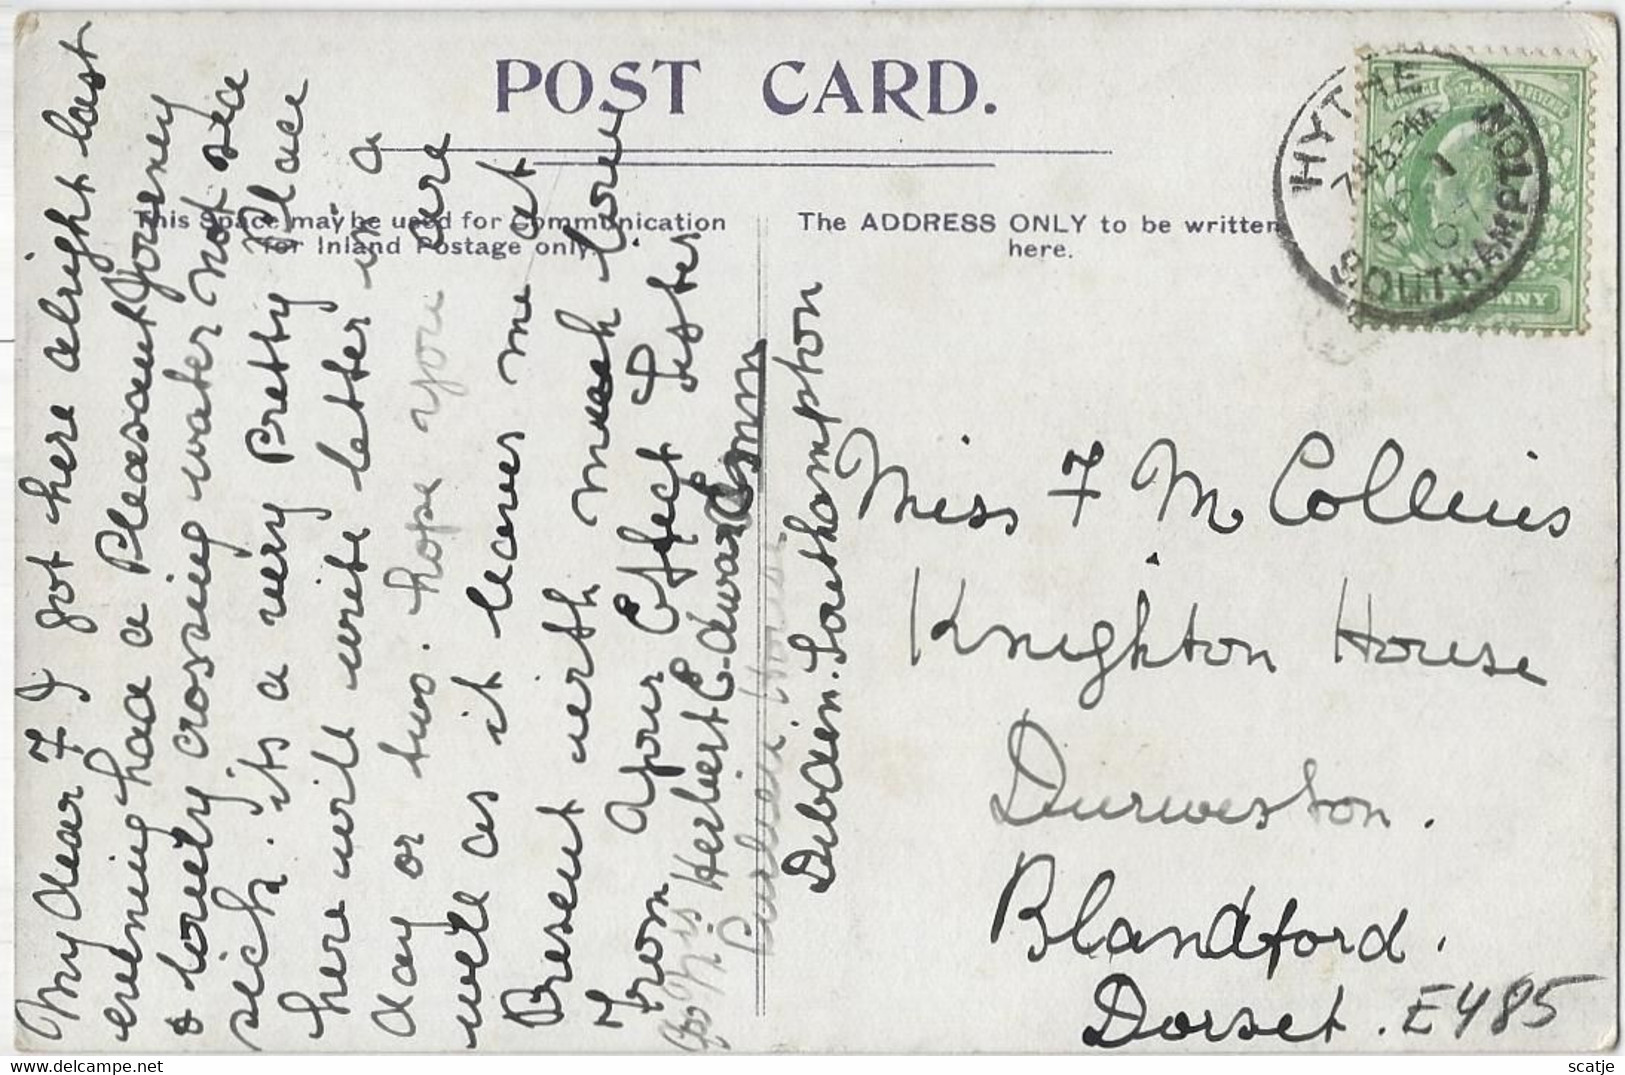 POST CARD.
This Space may be used for Communication
for Inland Postage only.
The ADDRESS ONLY to be written
here.
HYTHE
SOUTHAMPTON
My dear F I got here alright last
evening had a Pleasant Jorney
& lovely crossing water Not sea
sick. its a very Pretty Place
here will write letter in a
day or two. hope you are
well as it leaves me at
Present with much love
From your Affect Sister
Emm
C/o Mrs Herbert Edwards
House
Dibden. Southampton
Miss F M Collins
Knighton House
Durweston.
Blandford.
Dorset. E485
scatje